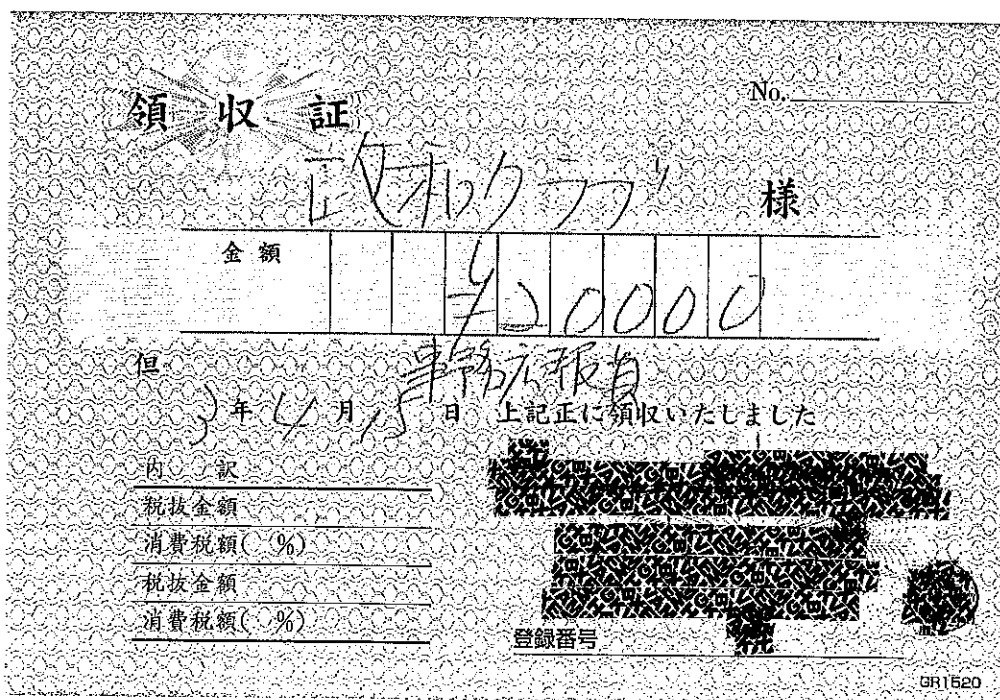 領収証
No.
政和クラブ 様
金額 ¥20000
但 事務広報費
3年4月15日 上記正に領収いたしました
内訳
税抜金額
消費税額( %)
税抜金額
消費税額( %)
登録番号
GR1520